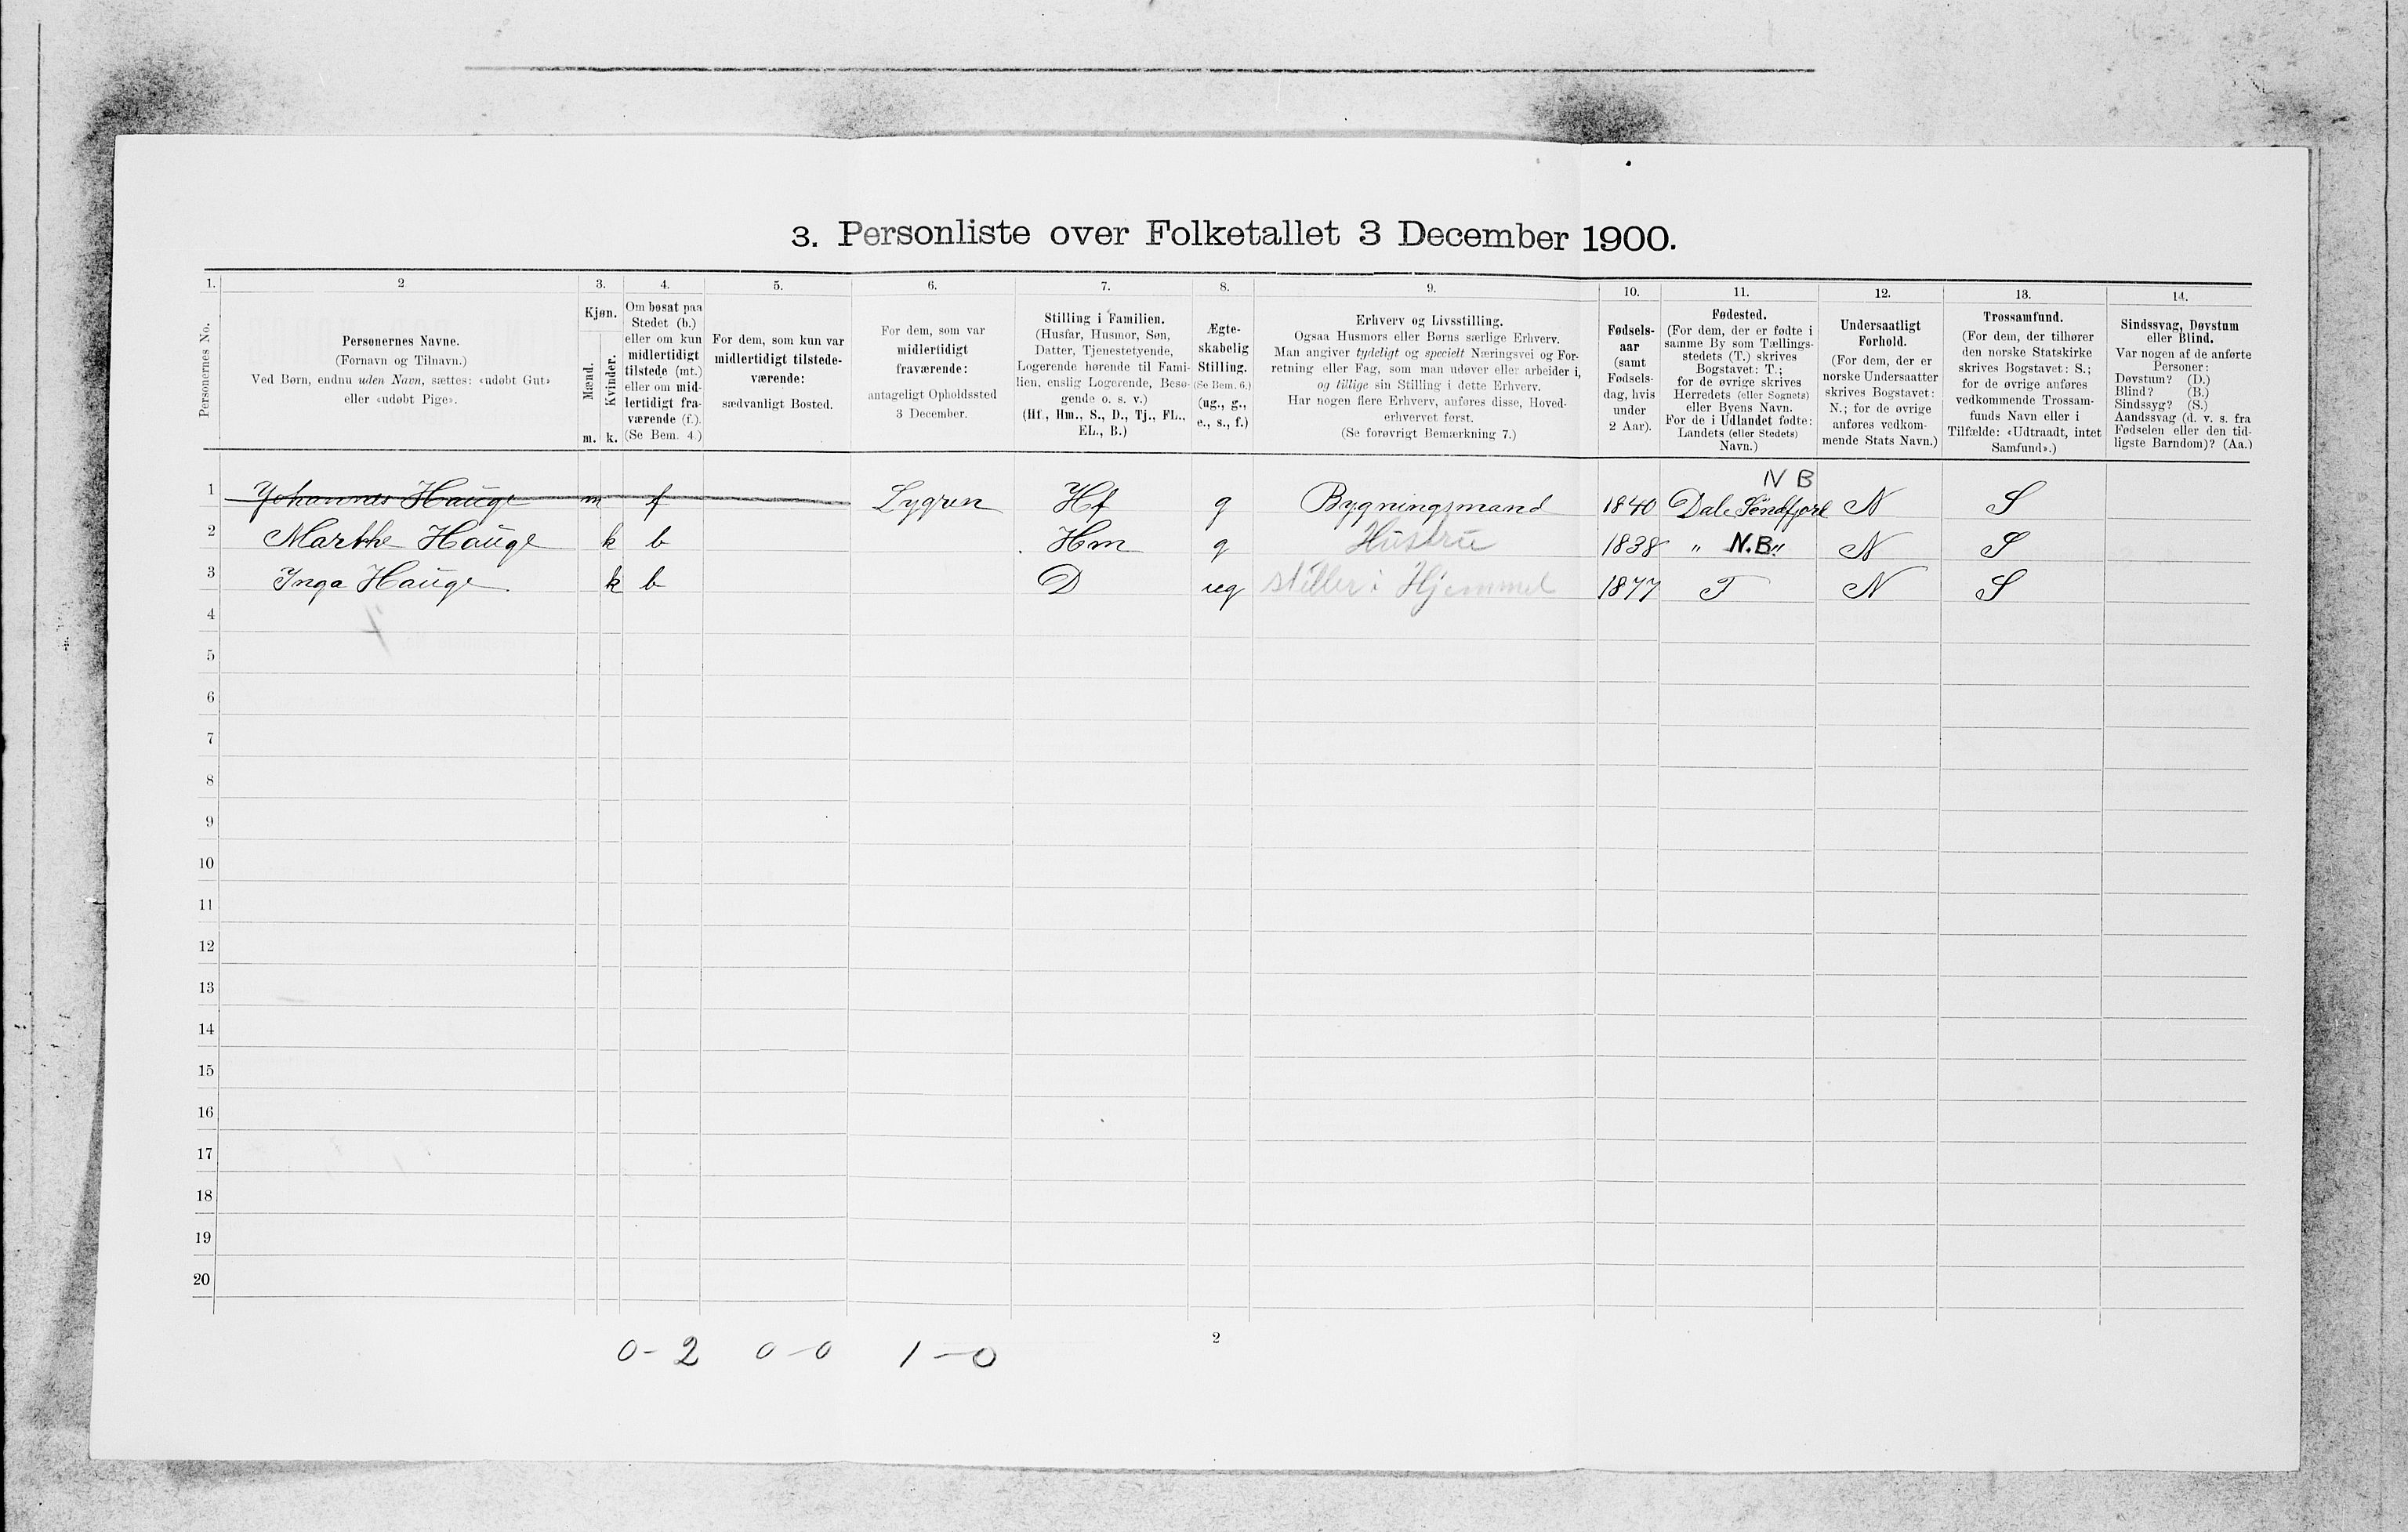 3. Personliste over Folketallet 3 December 1900.
1. 2 3. 4. 5. 6. 7. 8. 9. 10. 11. 12. 13. 14.
Personernes No.
Personernes Navne.
(Fornavn og Tilnavn.)
Ved Børn, endnu uden Navn, sættes: «udøbt Gut»
eller «udøbt Pige».
Kjøn.
Mænd.
Kvinder.
m. k.
Om bosat paa
Stedet (b.)
eller om kun
midlertidigt
tilstede (mt.)
eller om mid-
lertidigt fra-
værende (f.).
(Se Bem. 4.)
For dem, som kun var
midlertidigt tilstede-
værende:
sædvanligt Bosted.
For dem, som var
midlertidigt
fraværende:
antageligt Opholdssted
3 December.
Stilling i Familien.
(Husfar, Husmor, Søn,
Datter, Tjenestetyende,
Logerende hørende til Fami-
lien, enslig Logerende, Besø-
gende o. s. v.)
(Hf., Hm., S., D., Tj., FL.,
EL., B.)
Ægte-
skabelig
Stilling.
(Se Bem. 6.)
(ug., g.,
e., s., f.)
Erhverv og Livsstilling.
Ogsaa Husmors eller Børns særlige Erhverv.
Man angiver tydeligt og specielt Næringsvei og For-
retning eller Fag, som man udøver eller arbeider i,
og tillige sin Stilling i dette Erhverv.
Har nogen flere Erhverv, anføres disse, Hoved-
erhvervet først.
(Se forøvrigt Bemærkning 7.)
Fødsels-
aar
(samt
Fødsels-
dag, hvis
under
2 Aar).
Fødested.
(For dem, der er fødte i
samme By som Tællings-
stedets (T.) skrives
Bogstavet: T.;
for de øvrige skrives
Herredets (eller Sognets)
eller Byens Navn.
For de i Udlandet fødte:
Landets (eller Stedets)
Navn.)
Undersaatligt
Forhold.
(For dem, der er
norske Undersaatter
skrives Bogstavet:
N.; for de øvrige
anføres vedkom-
mende Stats Navn.)
Trossamfund.
(For dem, der tilhører
den norske Statskirke
skrives Bogstavet: S.;
for de øvrige anføres
vedkommende Trossam-
funds Navn eller i
Tilfælde: «Udtraadt, intet
Samfund».)
Sindssvag, Døvstum
eller Blind.
Var nogen af de anførte
Personer:
Døvstum? (D.)
Blind? (B.)
Sindssyg? (S.)
Aandssvag (d. v. s. fra
Fødselen eller den tid-
ligste Barndom)? (Aa.)
N B
1 Johannes Hauge m f Lygren Hf g Bygningsmand 1840 Dale Søndfjord N S
2 Marthe Hauge k b Hm g Hustru 1838 " N.B." N S
3 Inga Hauge k b D ug steller i Hjemmet 1877 T N S
4
5
6
7
8
9
10
11
12
13
14
15
16
17
18
19
20
2
0-2 0-0 1-0